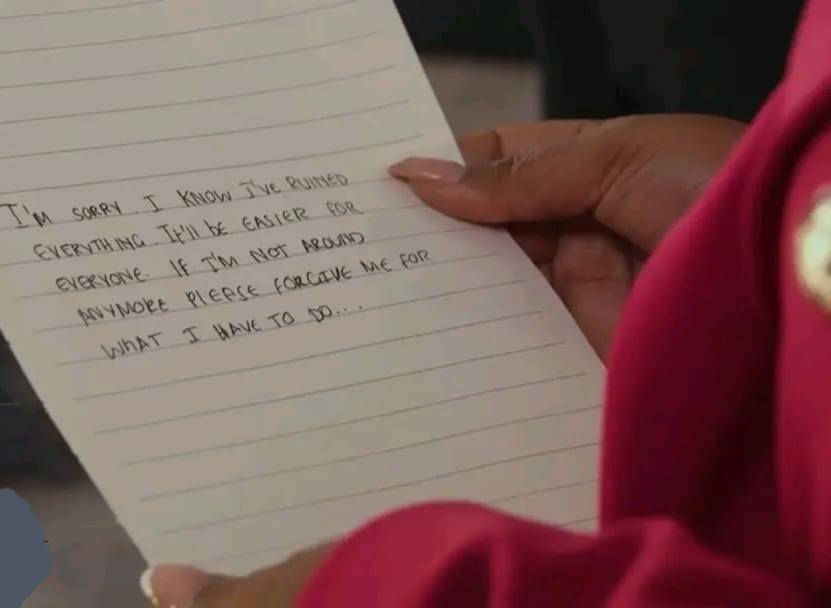 I'M SORRY. I KNOW I'VE RUINED
EVERYTHING. IT'll bE EASIER FOR
EVERYONE. IF I'M NOT AROUND
ANYMORE PLEASE FORGIVE ME FOR
WHAT I HAVE TO DO...